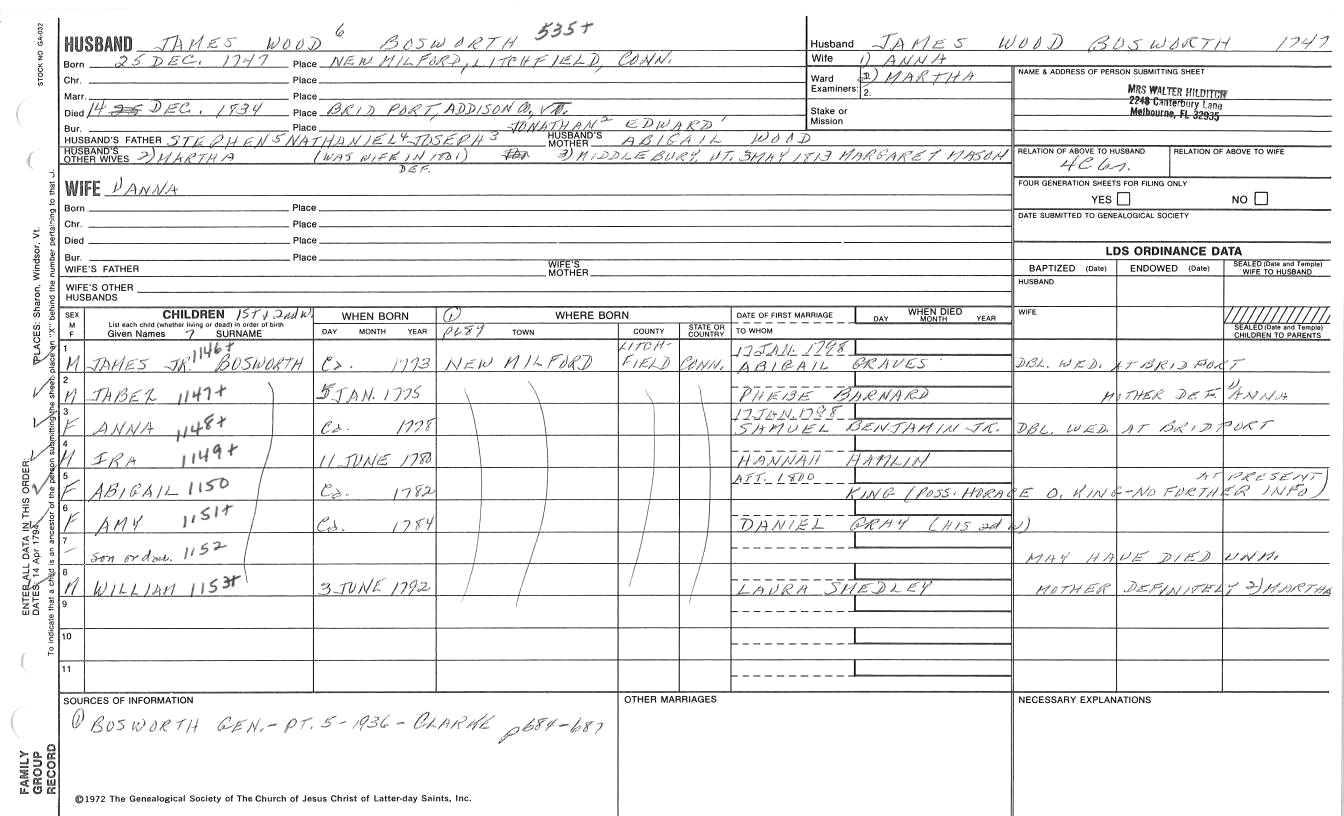 STOCK NO. GA-032
HUSBAND JAMES WOOD 6 BOSWORTH 535+
Born 25 DEC. 1747 Place NEW MILFORD, LITCHFIELD, CONN.
Chr. Place
Marr. Place
Died 14 DEC. 1834 Place BRIDPORT, ADDISON CO., VT.
Bur. Place
JONATHAN 2 EDWARD 1
HUSBAND'S FATHER STEPHEN 5 NATHANIEL 4 JOSEPH 3 HUSBAND'S MOTHER ABIGAIL WOOD
HUSBAND'S OTHER WIVES 2) MARTHA (WAS WIFE IN 1801) 3) MIDDLEBURY, VT. 3 MAY 1813 MARGARET MASON
DEF.
Husband JAMES WOOD BOSWORTH 1747
Wife 1) ANNA
Ward Examiners: 1. 2) MARTHA
2.
Stake or Mission
NAME & ADDRESS OF PERSON SUBMITTING SHEET
MRS WALTER HILDITCH
2248 Canterbury Lane
Melbourne, FL 32935
RELATION OF ABOVE TO HUSBAND RELATION OF ABOVE TO WIFE
FOUR GENERATION SHEETS FOR FILING ONLY
YES NO
DATE SUBMITTED TO GENEALOGICAL SOCIETY
WIFE 1) ANNA
Born Place
Chr. Place
Died Place
Bur. Place
WIFE'S FATHER WIFE'S MOTHER
WIFE'S OTHER HUSBANDS
LDS ORDINANCE DATA
BAPTIZED (Date) ENDOWED (Date) SEALED (Date and Temple) WIFE TO HUSBAND
HUSBAND
WIFE
SEALED (Date and Temple) CHILDREN TO PARENTS
SEX M F
CHILDREN 1ST & 2nd W.
List each child (whether living or dead) in order of birth
Given Names 7 SURNAME
WHEN BORN
DAY MONTH YEAR
① P684 WHERE BORN
TOWN COUNTY STATE OR COUNTRY
DATE OF FIRST MARRIAGE
TO WHOM
WHEN DIED
DAY MONTH YEAR
1 M JAMES JR. 1146+ BOSWORTH Ca. 1773 NEW MILFORD LITCHFIELD CONN. 17 JAN. 1798 ABIGAIL GRAVES DBL. WED. AT BRIDPORT
2 M JABEZ 1147+ 5 JAN. 1775 PHEBE BARNARD MOTHER DEF. 1) ANNA
3 F ANNA 1148+ Ca. 1778 17 JAN. 1798 SAMUEL BENJAMIN JR. DBL. WED. AT BRIDPORT
4 M IRA 1149+ 11 JUNE 1780 HANNAH HAMLIN
5 F ABIGAIL 1150 Ca. 1782 AFT. 1800 KING (POSS. HORACE O. KING-NO FURTHER INFO) AT PRESENT)
6 F AMY 1151+ Ca. 1784 DANIEL GRAY (HIS 2d W)
7 - son or dau. 1152 MAY HAVE DIED UNM.
8 M WILLIAM 1153+ 3 JUNE 1792 LAURA SMEDLEY MOTHER DEFINITELY 2) MARTHA
9
10
11
SOURCES OF INFORMATION
① BOSWORTH GEN. - PT. 5 - 1936 - CLARKE p684-687
OTHER MARRIAGES
NECESSARY EXPLANATIONS
©1972 The Genealogical Society of The Church of Jesus Christ of Latter-day Saints, Inc.
ENTER ALL DATA IN THIS ORDER:
DATES: 14 Apr 1794 PLACES: Sharon, Windsor, Vt.
To indicate that a child is an ancestor of the person submitting the sheet, place an "X" behind the number pertaining to that
FAMILY GROUP RECORD